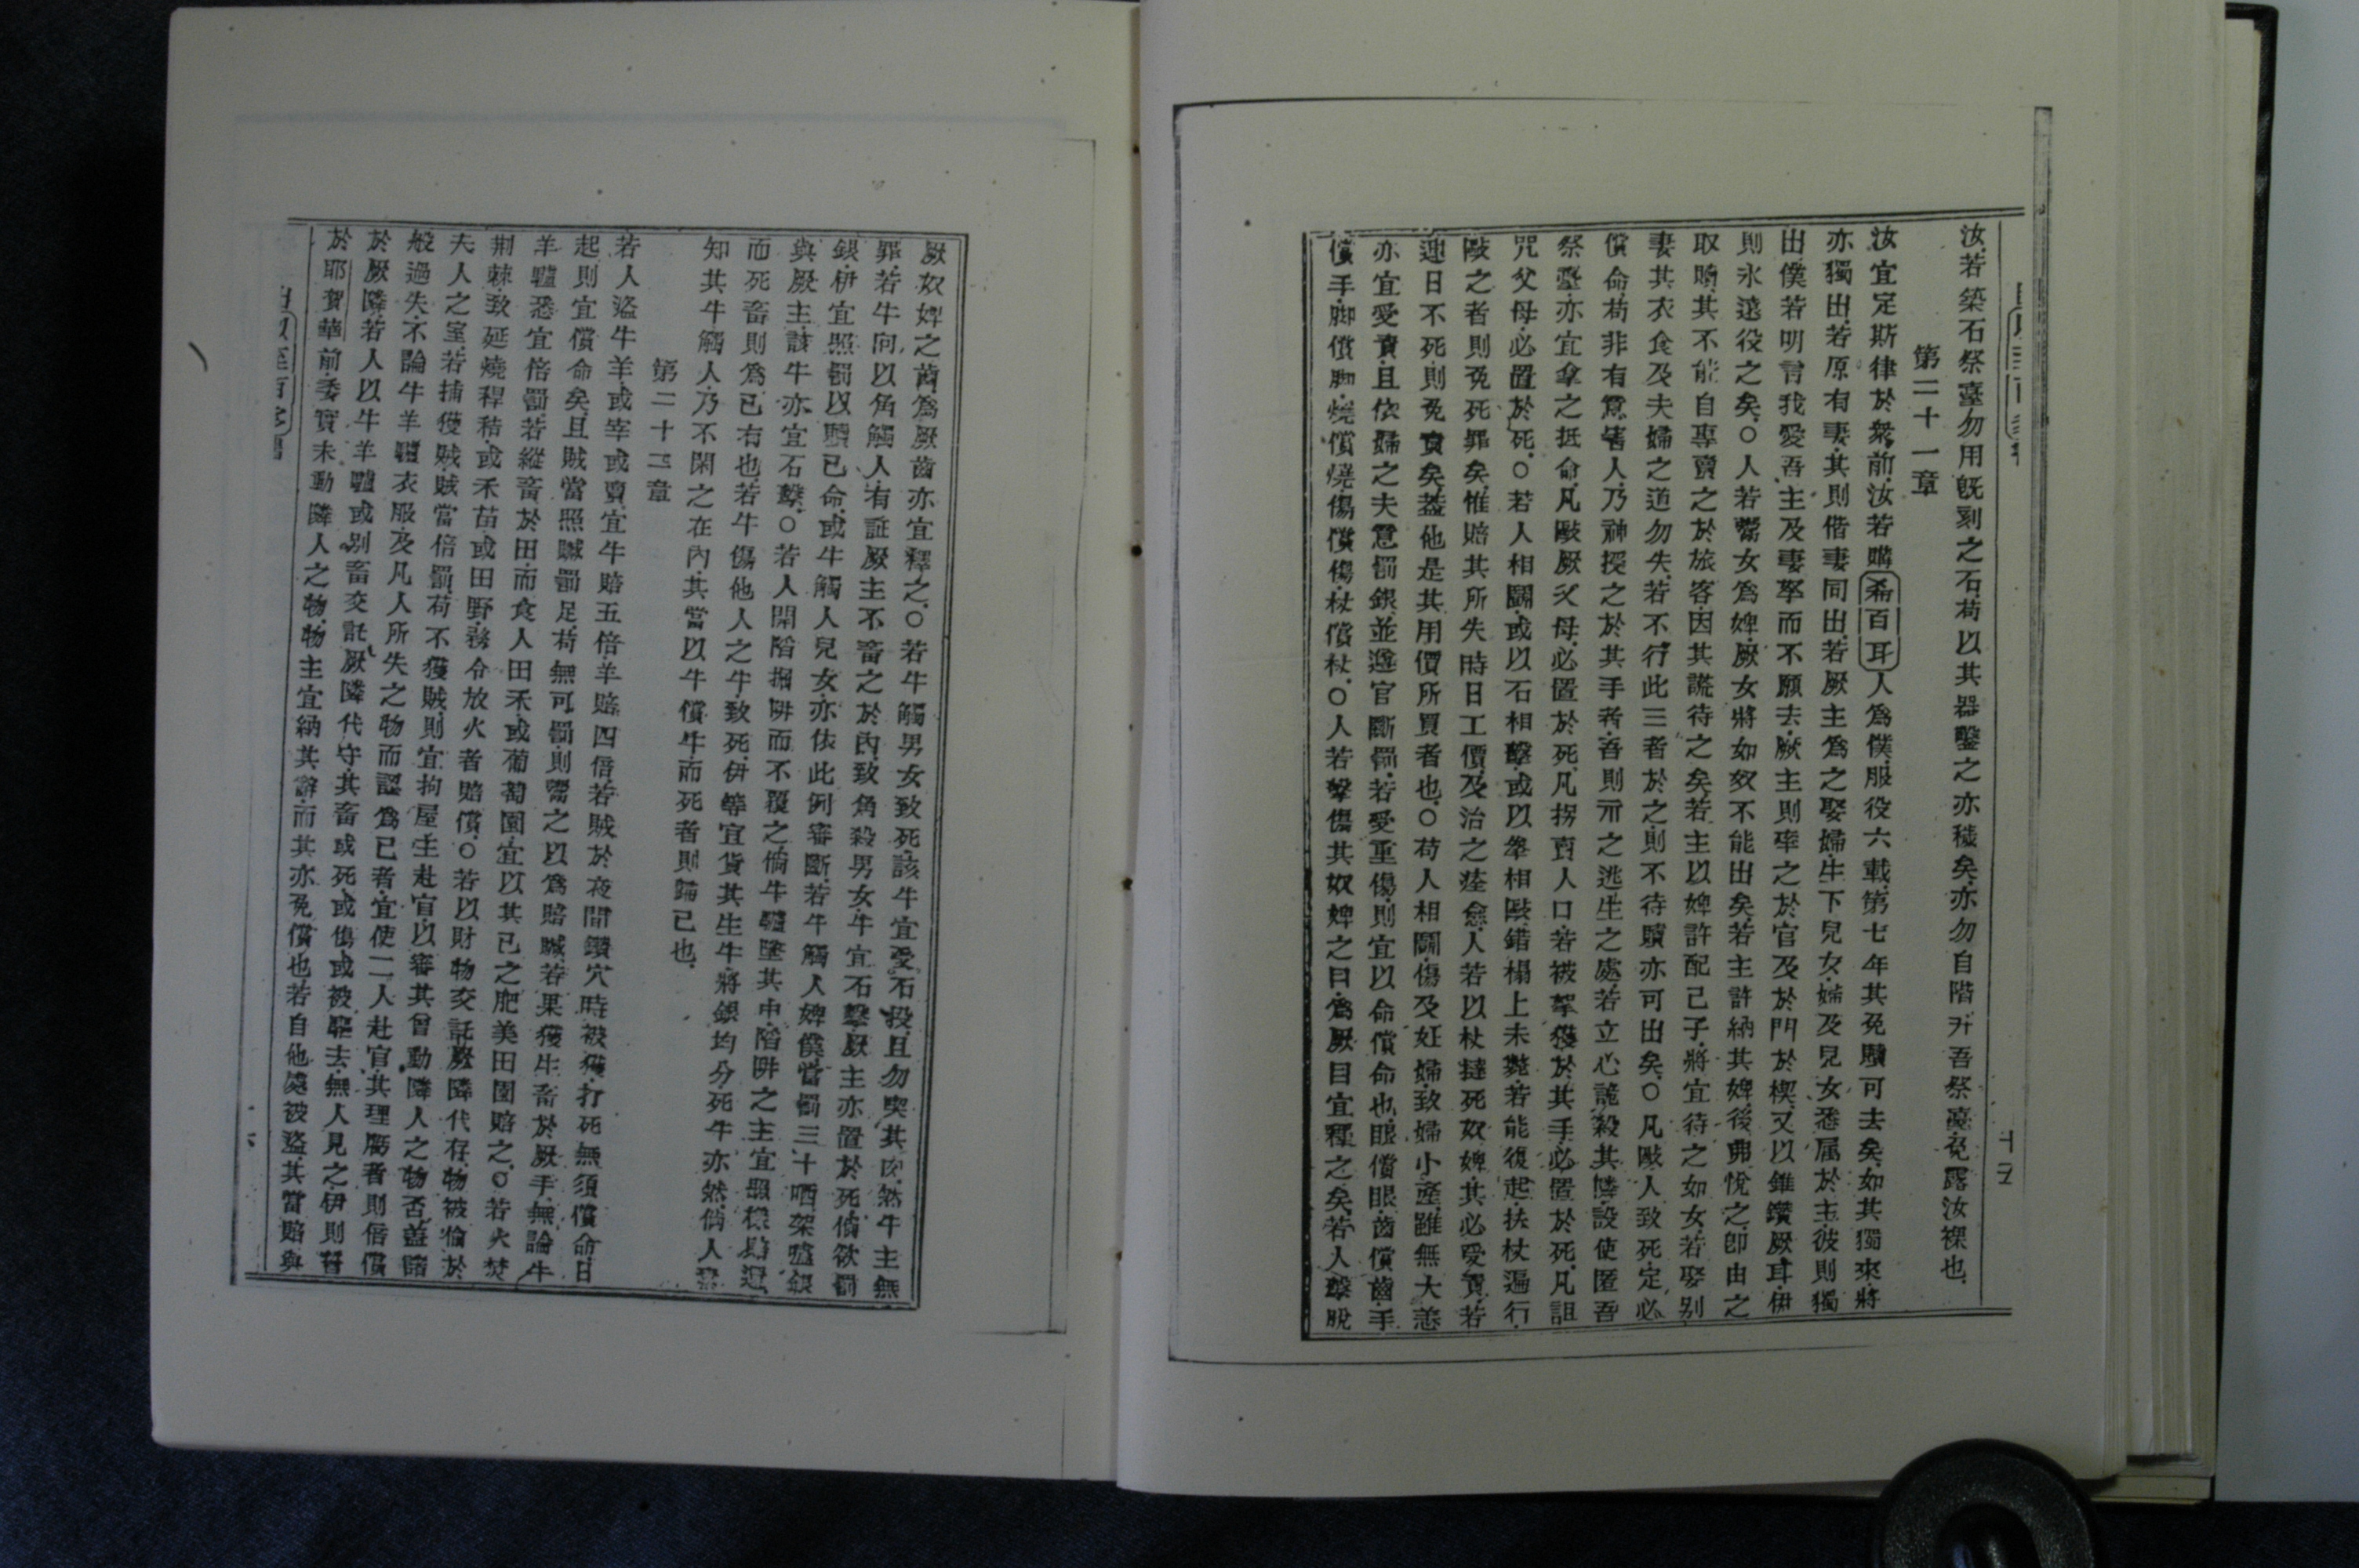 汝若築石祭臺勿用既刻之石苟以其器鑿之亦穢矣亦勿自階升吾祭臺免露汝裸也
第二十一章
汝宜定斯律於衆前汝若購希百耳人爲僕服役六載第七年其免贖可去矣如其獨來將
亦獨出若原有妻其則偕妻同出若厥主爲之娶婦生下兒女婦及兒女悉属於主彼則獨
出僕若明言我愛吾主及妻孥而不願去厥主則率之於官及於門於楔又以錐鑽厥耳伊
則永遠役之矣○人若鬻女爲婢厥女將如奴不能出矣若主許納其婢後弗悅之卽由之
取贖其不能自專賣之於旅客因其謊待之矣若主以婢許配己子將宜待之如女若娶别
妻其衣食及夫婦之道勿失若不行此三者於之則不待贖亦可出矣○凡毆人致死定必
償命苟非有意害人乃神授之於其手者吾則示之逃生之處若立心詭殺其隣設使匿吾
祭臺亦宜拿之抵命凡毆厥父母必置於死凡拐賣人口若被拏獲於其手必置於死凡詛
咒父母必置於死○若人相鬭或以石相擊或以拳相毆錯榻上未斃若能復起扶杖遍行
毆之者則免死罪矣惟賠其所失時日工價及治之痊愈人若以杖撻死奴婢其必受責若
逾日不死則免責矣蓋他是其用價所買者也○苟人相鬭傷及妊婦致婦小產雖無大恙
亦宜受責且依婦之夫意罰銀並遵官斷罰若受重傷則宜以命償命也眼償眼齒償齒手
償手脚償脚燒償燒傷償傷杖償杖○人若擊傷其奴婢之目爲厥目宜釋之矣若人擊脫
厥奴婢之齒爲厥齒亦宜釋之○若牛觸男女致死該牛宜受石投且勿喫其肉然牛主無
罪若牛向以角觸人有証厥主不畜之於內致角殺男女牛宜石擊厥主亦置於死倘欲罰
銀伊宜照罰以贖己命或牛觸人兒女亦依此例審斷若牛觸人婢僕當罰三十哂架爐銀
與厥主該牛亦宜石擊○若人開陷掘阱而不覆之倘牛驢墜其中陷阱之主宜照樣賠還
而死畜則爲己有也若牛傷他人之牛致死伊等宜貨其生牛將銀均分死牛亦然倘人
知其牛觸人乃不閑之在內其當以牛償牛而死者則歸己也
第二十二章
若人盜牛羊或宰或賣宜牛賠五倍羊賠四倍若賊於夜間鑽穴時被獲打死無須償命日
起則宜償命矣且賊當照贓罰足苟無可罰則鬻之以爲賠贓若果獲生畜於厥手無論牛
羊驢悉宜倍罰若縱畜於田而食人田禾或葡萄園宜以其己之肥美田園賠之○若火焚
荆棘致延燒稈秸或禾苗或田野務令放火者賠償○若以財物交託厥隣代存物被偷於
夫人之室若捕獲賊賊當倍罰苟不獲賊則宜拘屋主赴官以審其曾動隣人之物否蓋諸
般過失不論牛羊驢衣服及凡人所失之物而認爲己者宜使二人赴官其理虧者則倍償
於厥隣若人以牛羊驢或别畜交託厥隣代守其畜或死或傷或被驅去無人見之伊則誓
於耶賀華前委實未動隣人之物物主宜納其辭而其亦免償也若自他處被盜其當賠與